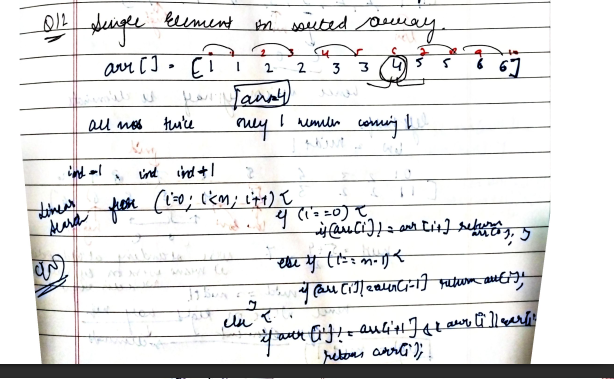 Q12 Single Element in sorted array.
0 1 2 3 4 5 6 7 8 9 10
arr[] = [1 1 2 2 3 3 4 5 5 6 6]
[ans=4]
all nos twice only 1 number coming 1
ind-1, ind ind+1
Linear Search for (i=0; i<n; i++) {
if (i==0) {
if (arr[i] != arr[i+1] return arr[i]; }
else if (i == n-1) {
if (arr[i] != arr[i-1] return arr[i];
O(N)
}
else {
if arr[i] != arr[i+1] && arr[i] != arr[i
return arr[i];